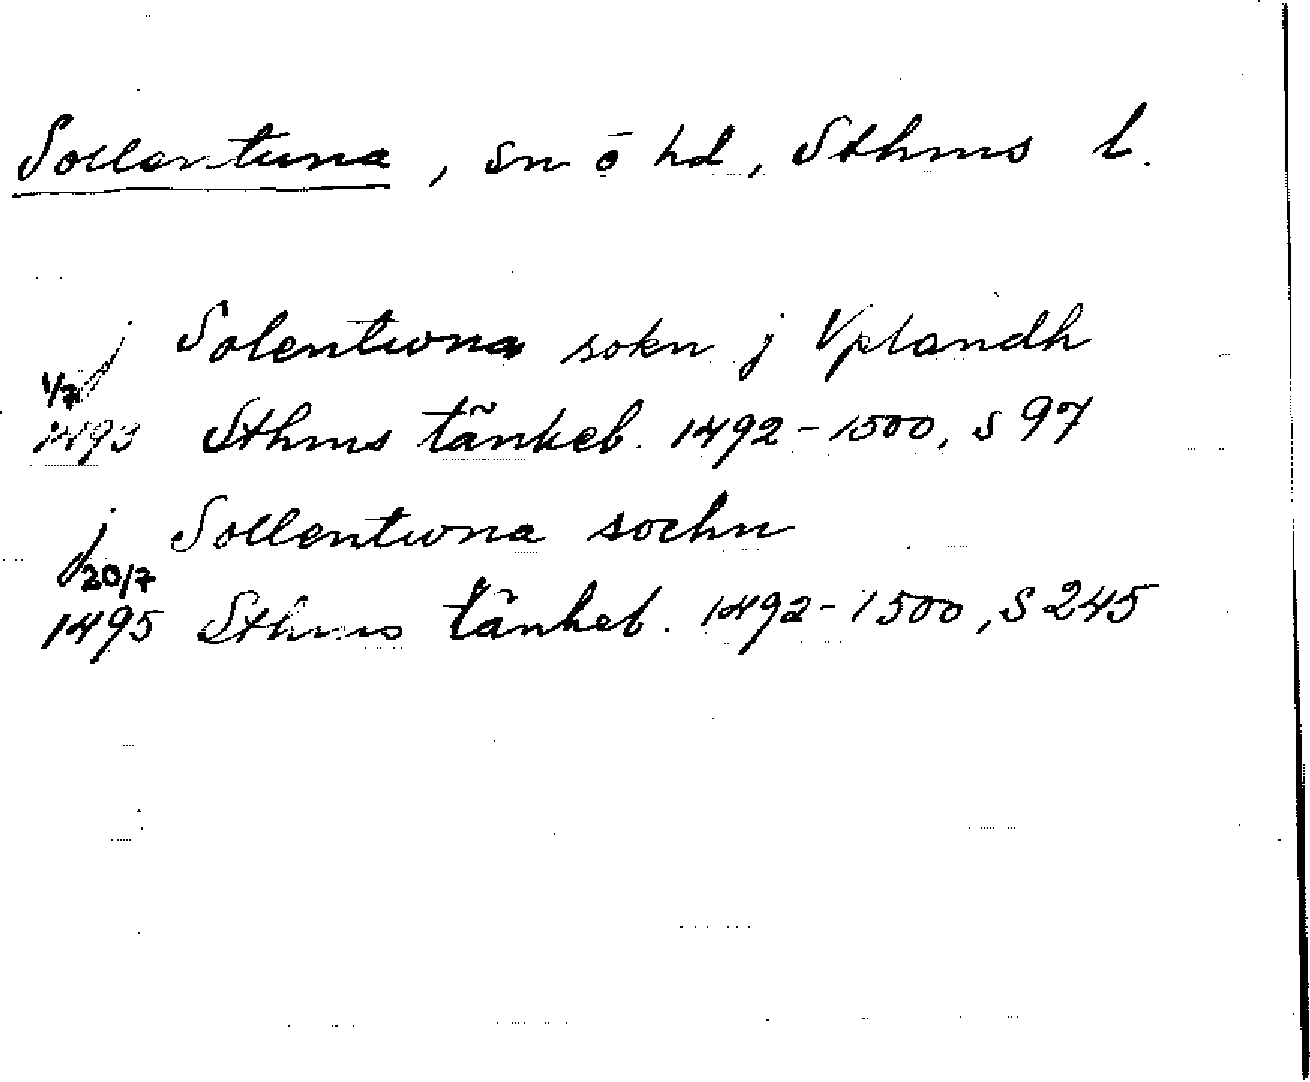 Sollentuna, sn ō hd, Sthms l.
j Solentwna sokn j Vplandh
1/7
1493 Sthms tänkeb. 1492-1500, s 97
j Sollentwna sochn
20/7
1495 Sthms tänkeb. 1492-1500, s 245